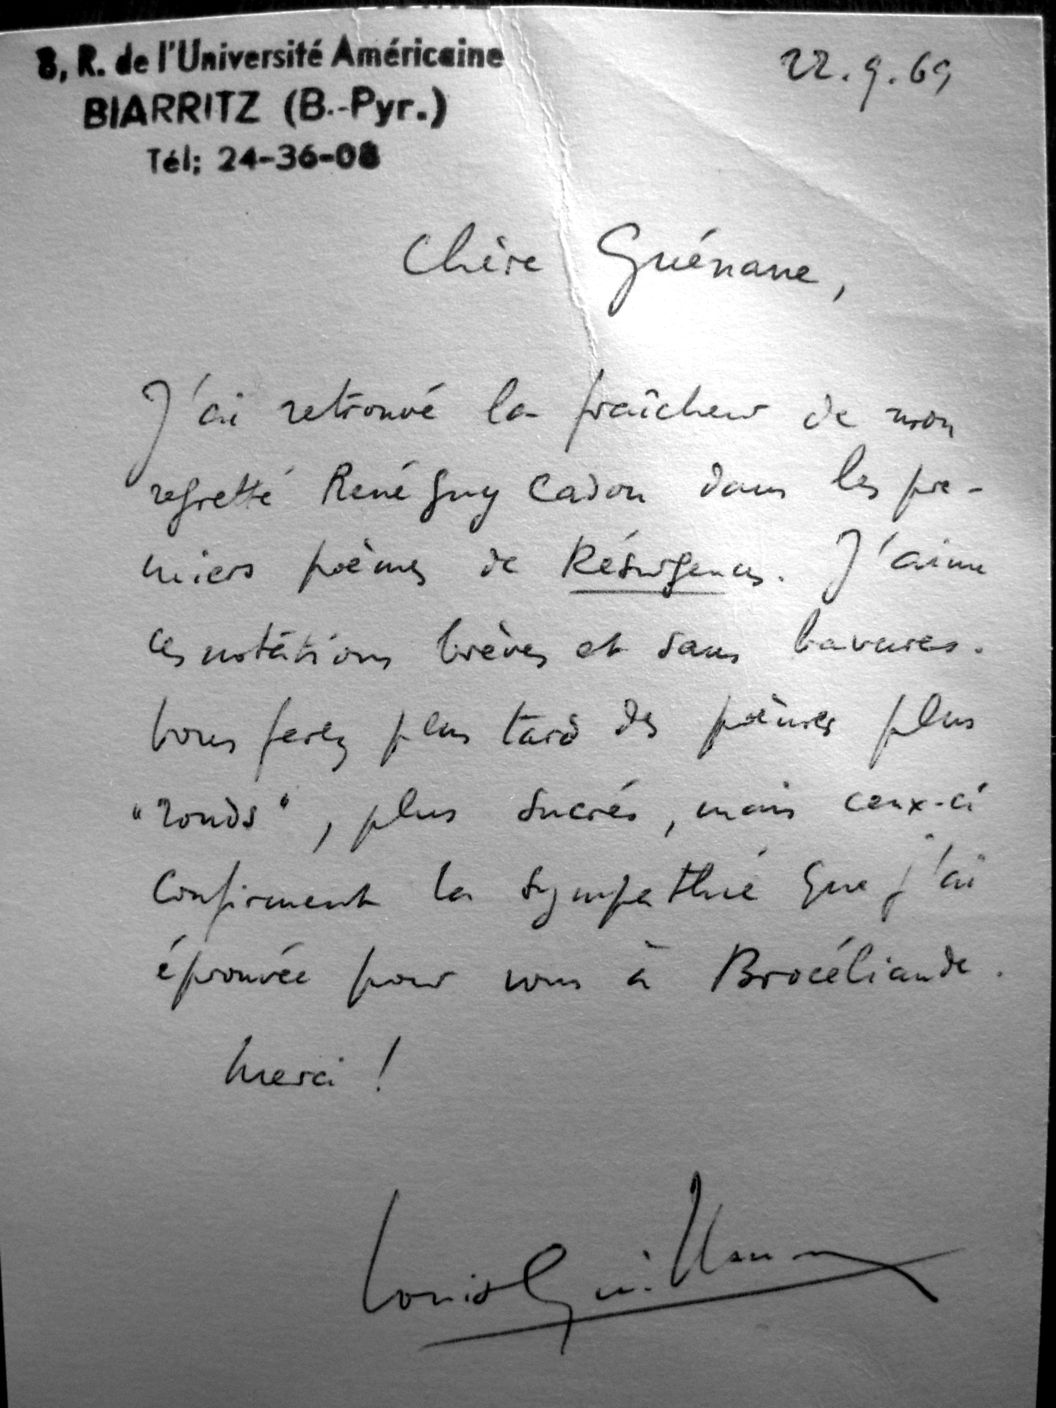 8, R. de l'Université Américaine
BIARRITZ (B.-Pyr.)
Tél; 24-36-08
22.9.69
Chère Guénane,
J'ai retrouvé la fraîcheur de mon
regretté René Guy Cadou dans les pre-
miers poèmes de Résurgences. J'aime
ces notations brèves et sans bavures.
Vous ferez plus tard des poèmes plus
"ronds", plus sucrés, mais ceux-ci
confirment la sympathie que j'ai
éprouvée pour vous à Brocéliande.
Merci !
Louis Guillaume